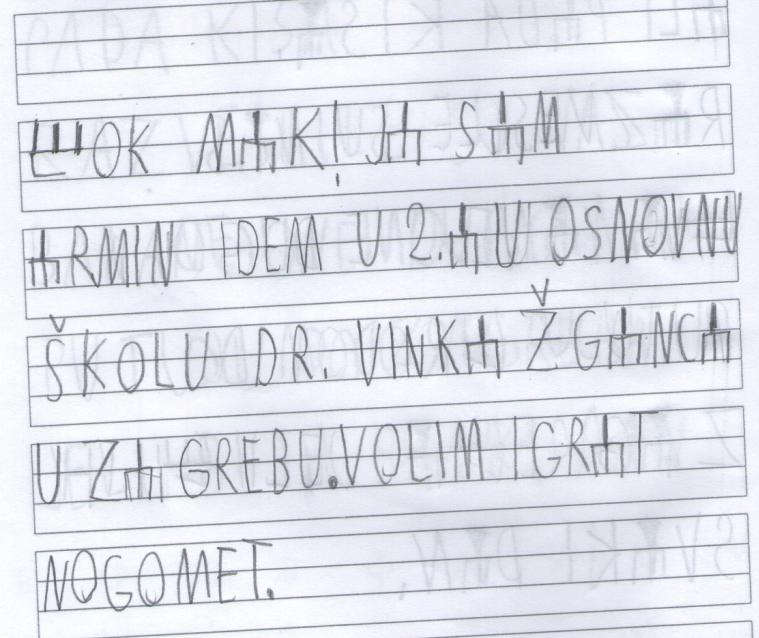 ⰁOK MⰀK! JⰀ SⰀM
ⰀRMIN IDEM U 2.Ⰰ U OSNOVNU
ŠKOLU DR. VINKⰀ ŽGⰀNCⰀ
U ZⰀGREBU. VOLIM IGRⰀT
NOGOMET.